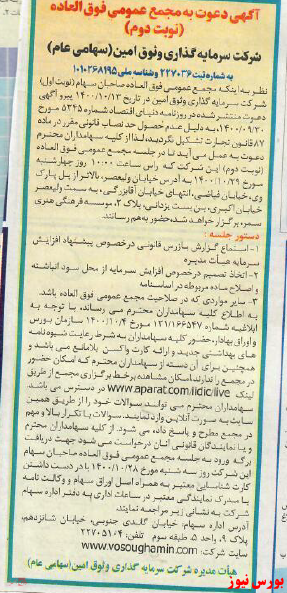 آگهی دعوت به مجمع عمومی فوق العاده
(نوبت دوم)
شرکت سرمایه گذاری وثوق امین (سهامی عام)
به شماره ثبت ۲۲۷۰۳۶ وشناسه ملی ۱۰۱۰۲۶۸۱۹۵
نظر به اینکه مجمع عمومی فوق العاده صاحبان سهام (نوبت اول)
شرکت سرمایه گذاری وثوق امین در تاریخ ۱۴۰۰/۱۰/۱۳ پیرو آگهی
دعوت منتشر شده در روزنامه دنیای اقتصاد شماره ۵۳۴۵ مورخ
۱۴۰۰/۰۹/۳۰، به دلیل عدم حصول حد نصاب قانونی مقرر در ماده
۸۷ قانون تجارت تشکیل نگردید، لذا از کلیه سهامداران محترم
دعوت به عمل می آید تا در جلسه مجمع عمومی فوق العاده
(نوبت دوم) این شرکت که راس ساعت ۱۰:۰۰ روز چهارشنبه
مورخ ۱۴۰۰/۱۰/۲۹ به آدرس خیابان ولیعصر، بالاتر از پل پارک
وی، خیابان فیاضی، انتهای خیابان آقابزرگی، به سمت ولیعصر
خیابان اکبری، بن بست یزدانی، پلاک ۲، موسسه فرهنگی هنری
سمر، برگزار خواهد شد حضور به هم رسانند.
دستور جلسه:
۱- استماع گزارش بازرس قانونی درخصوص پیشنهاد افزایش
سرمایه هیأت مدیره
۲- اتخاذ تصمیم درخصوص افزایش سرمایه از محل سود انباشته
و اصلاح ماده مربوطه در اساسنامه
۳- سایر مواردی که در صلاحیت مجمع عمومی فوق العاده باشد.
به اطلاع کلیه سهامداران محترم می رساند، با توجه به
ابلاغیه شماره ۱۳۱/۱۶۶۵۴۷ مورخ ۱۴۰۰/۱۰/۴ سازمان بورس
و اوراق بهادار، حضور کلیه سهامداران به شرط رعایت شیوه نامه
های بهداشتی جدید و ارائه کارت واکسن بلامانع می باشد و
همچنین برای آن دسته از سهامداران محترم که امکان حضور
در مجمع را ندارند امکان مشاهده برخط برگزاری مجمع از طریق
لینک www.aparat.com/idic/live در دسترس می باشد.
سهامداران محترم می توانند سوالات خود را از طریق همین
سایت به صورت آنلاین وارد نمایند، سوالات با تکرار بالا و مهم
در مجمع مطرح و پاسخ داده می شود. از کلیه سهامداران محترم
و یا نمایندگان قانونی آنان درخواست می شود جهت دریافت
برگه ورود به جلسه مجمع عمومی فوق العاده صاحبان سهام
این شرکت روز سه شنبه مورخ ۱۴۰۰/۱۰/۲۸ با در دست داشتن
کارت شناسایی معتبر به همراه اصل اوراق سهام و وکالت نامه
یا مدرک نمایندگی معتبر در ساعات اداری به دفتر اداره سهام
شرکت به نشانی زیر مراجعه نمایند.
آدرس اداره سهام: خیابان گاندی جنوبی، خیابان شانزدهم،
پلاک ۹، واحد ۵ طبقه سوم تلفن: ۲۲۷۰۵۱۰۴
سایت شرکت: www.vosoughamin.com
هیأت مدیره شرکت سرمایه گذاری وثوق امین (سهامی عام)
بورس نیوز